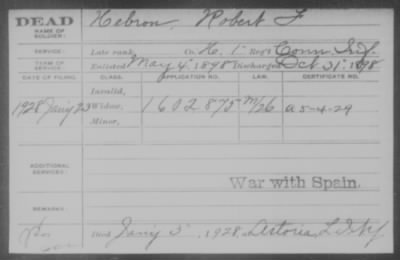 DEAD Hebron, Robert F
NAME OF SOLDIER:
SERVICE: Late rank, Co. H. 1" Reg't Conn. Inf.
TERM OF SERVICE: Enlisted May 4" 1898 Discharged Oct 31" 1898
DATE OF FILING. CLASS. APPLICATION NO. LAW. CERTIFICATE NO.
Invalid,
1928 Jan'y 23 Widow, 1602875 M/26 a 5-4-29
Minor,
ADDITIONAL SERVICES:
War with Spain.
REMARKS:
Died Jan'y 3", 1928, Astoria, L.I. N.Y.